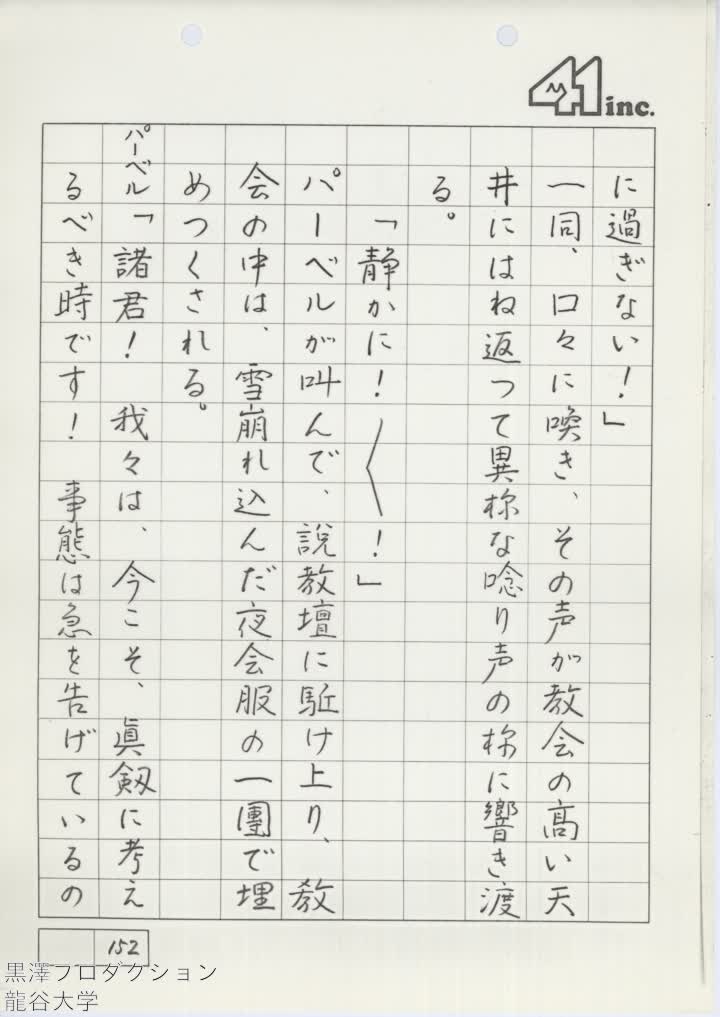 41 inc.
に過ぎない！」
一同、口々に喚き、その声が教会の高い天
井にはね返って異様な唸り声の様に響き渡
る。
「静かに！〱！」
パーベルが叫んで、説教壇に駈け上り、教
会の中は、雪崩れ込んだ夜会服の一團で埋
めつくされる。
パーベル「諸君！　我々は、今こそ、眞剱に考え
るべき時です！　事態は急を告げているの
152
黒澤プロダクション
龍谷大学